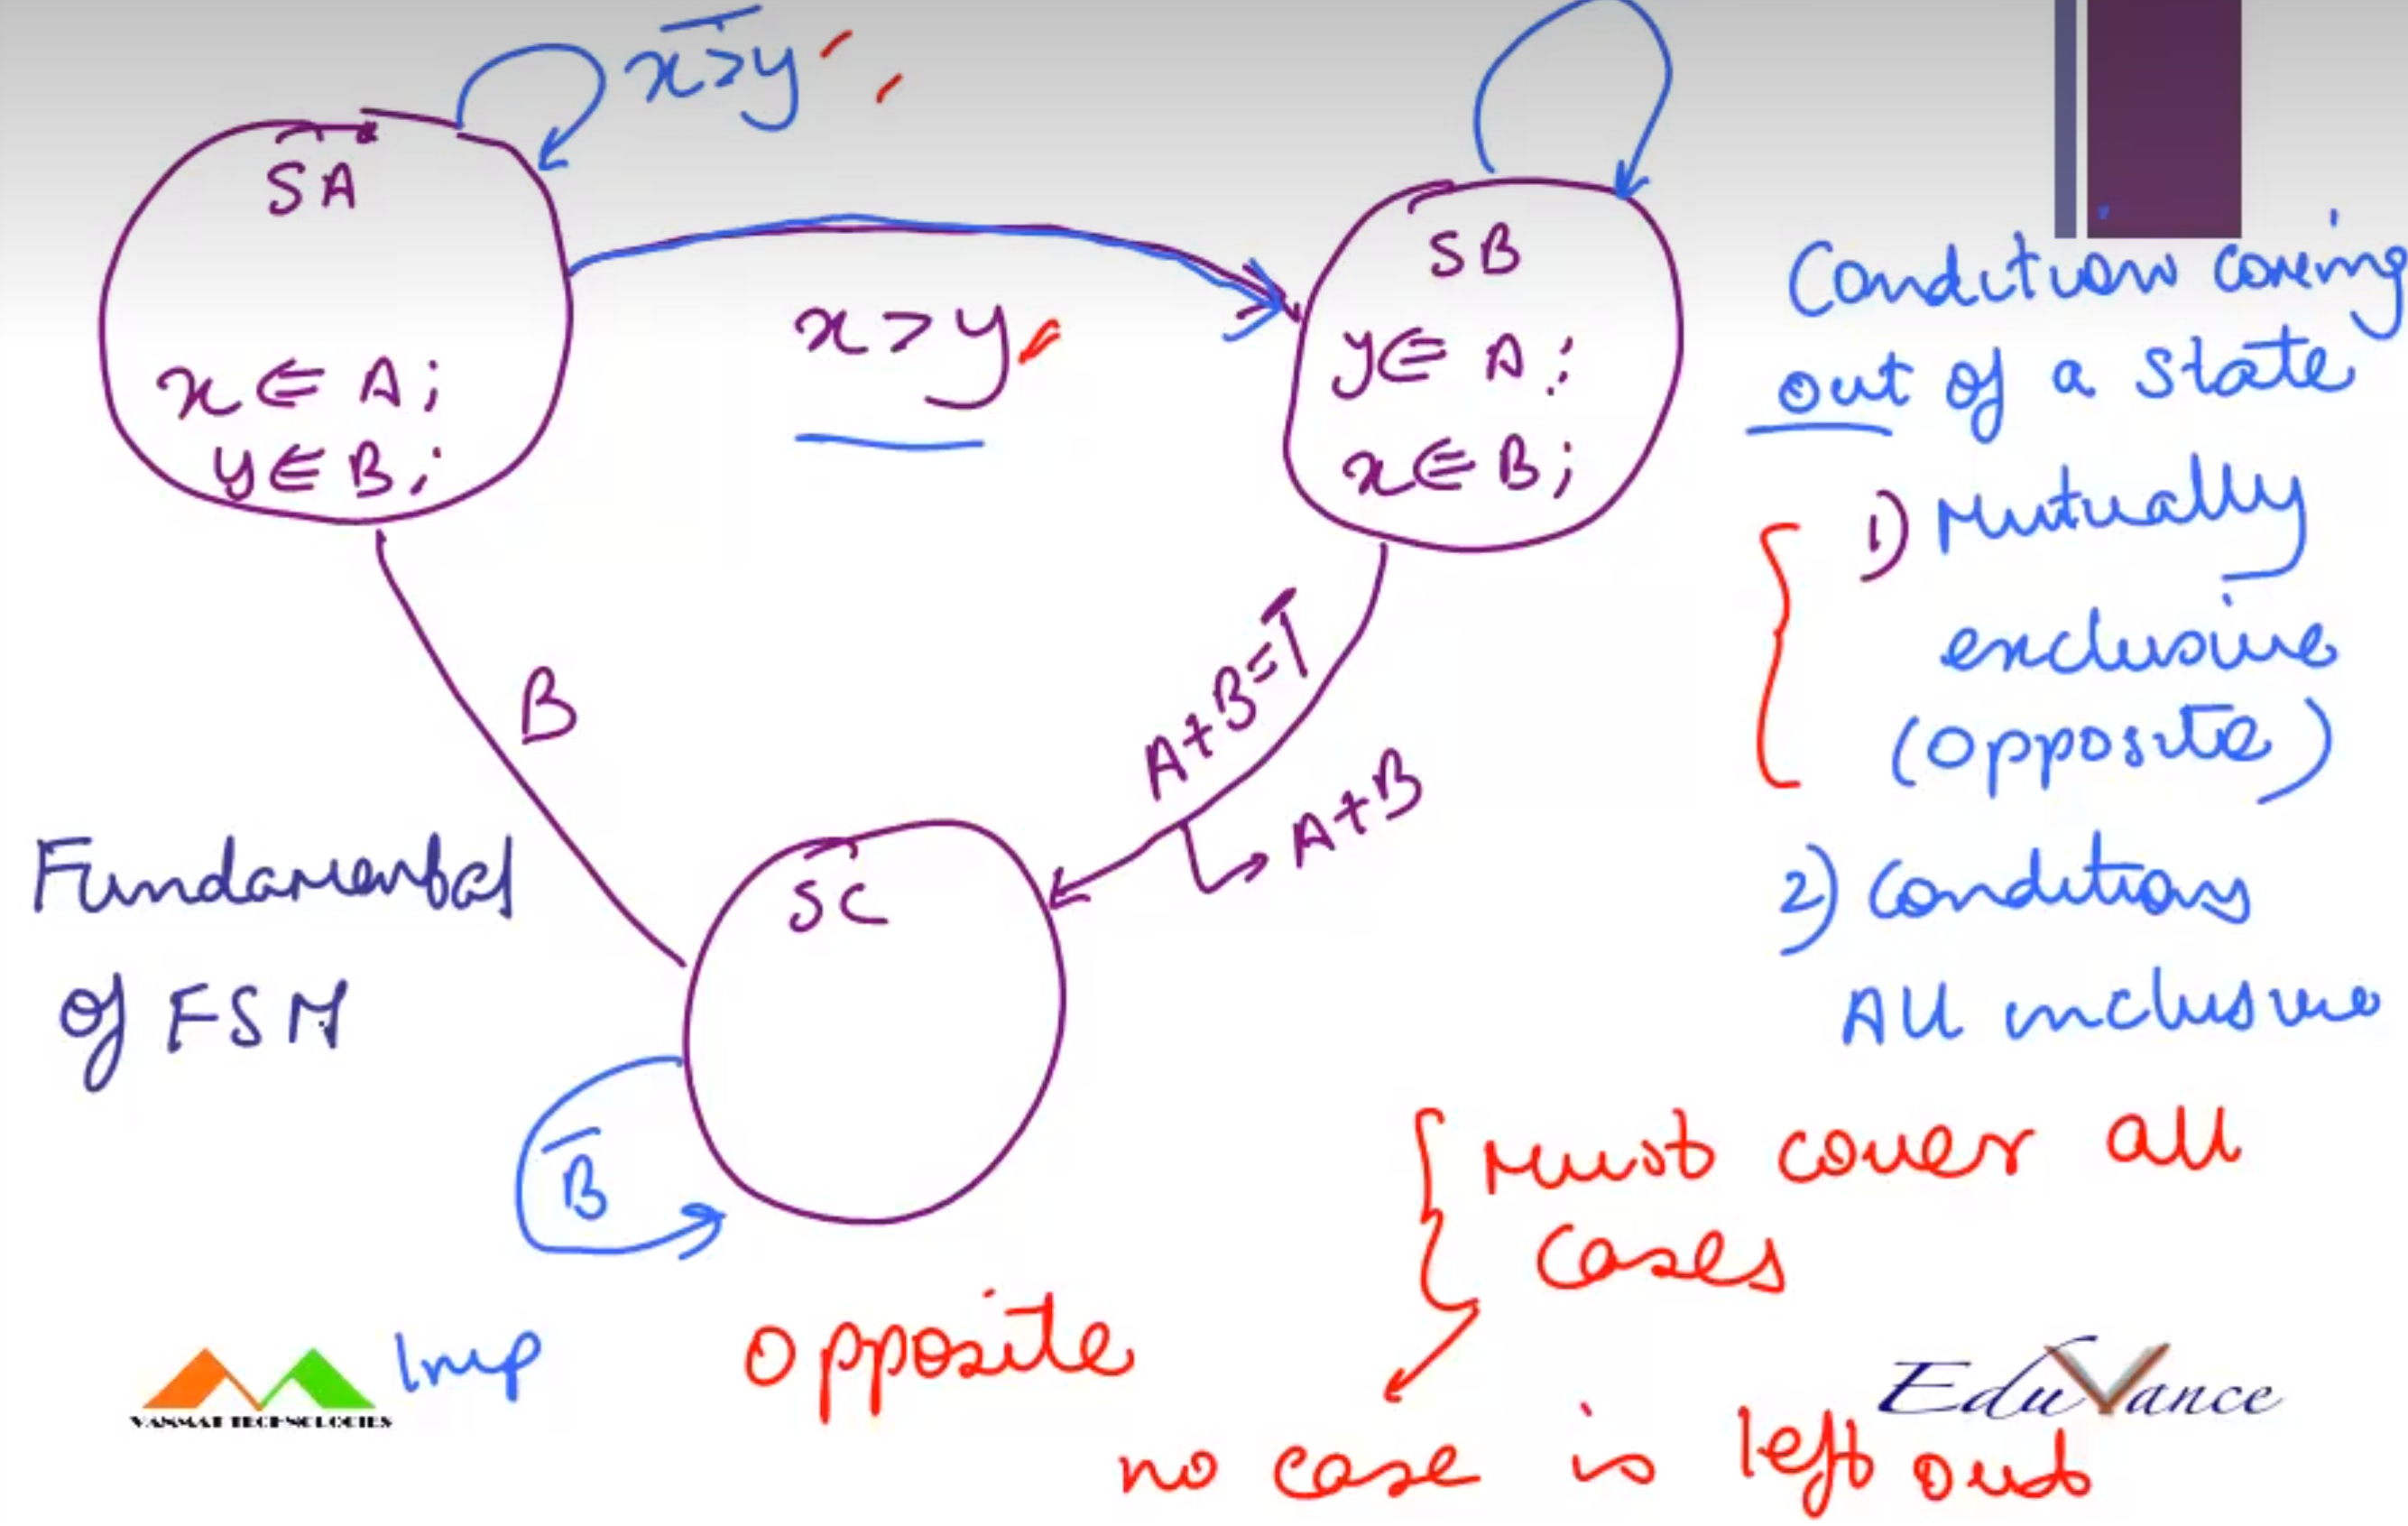 x>y
SA
x ∈ A;
y ∈ B;
x > y
SB
y ∈ A;
x ∈ B;
Condition coming
out of a state
1) Mutually
exclusive
(opposite)
2) Conditions
All inclusive
B
A+B=1
A+B
SC
B̅
Fundamental
of FSM
Must cover all
cases
Imp
opposite
no case is left out
VANMAT TECHNOLOGIES
EduVance